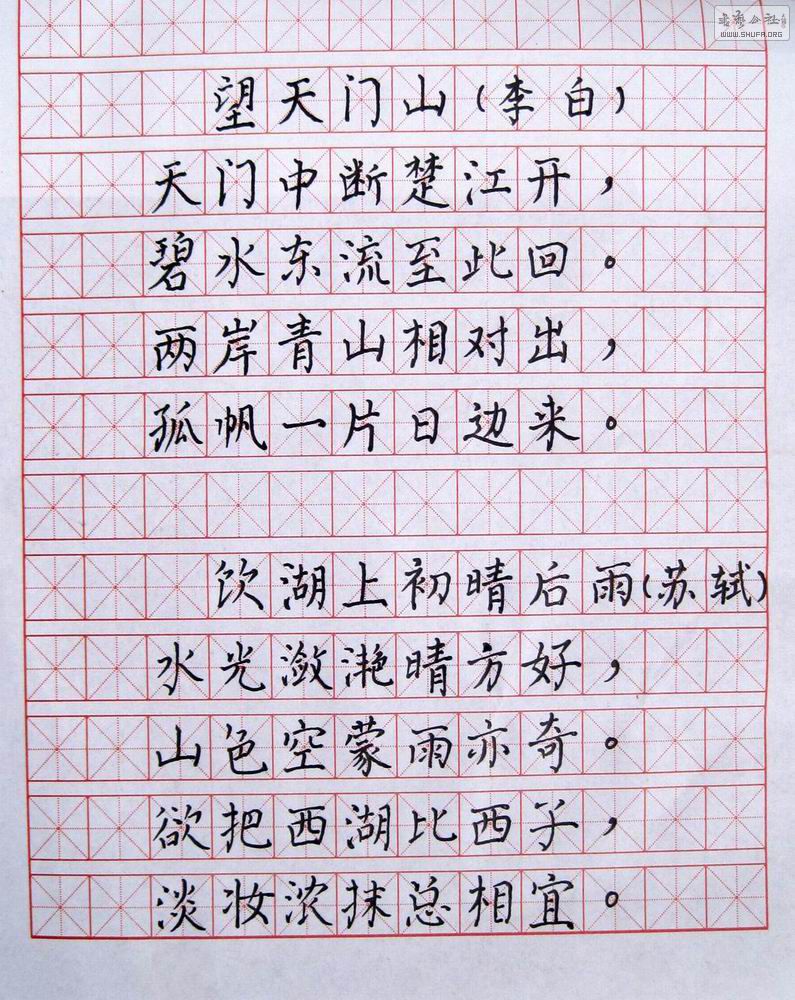 书法公社
WWW.SHUFA.ORG
望天门山(李白)
天门中断楚江开，
碧水东流至此回。
两岸青山相对出，
孤帆一片日边来。
饮湖上初晴后雨(苏轼)
水光潋滟晴方好，
山色空蒙雨亦奇。
欲把西湖比西子，
淡妆浓抹总相宜。